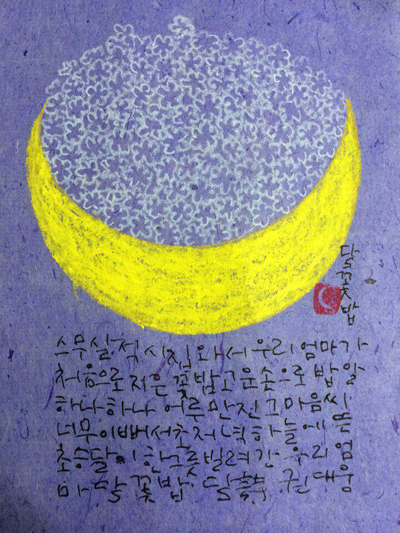 달꽃밥
스무살적 시집와서 우리엄마가
처음으로 지은 꽃밥 고운손으로 밥알
하나하나 어르만진 그 마음씨
너무 이뻐서 초저녁 하늘에 뜬
초승달이 한그릇 빌려간 우리 엄
마 달꽃밥 권대웅